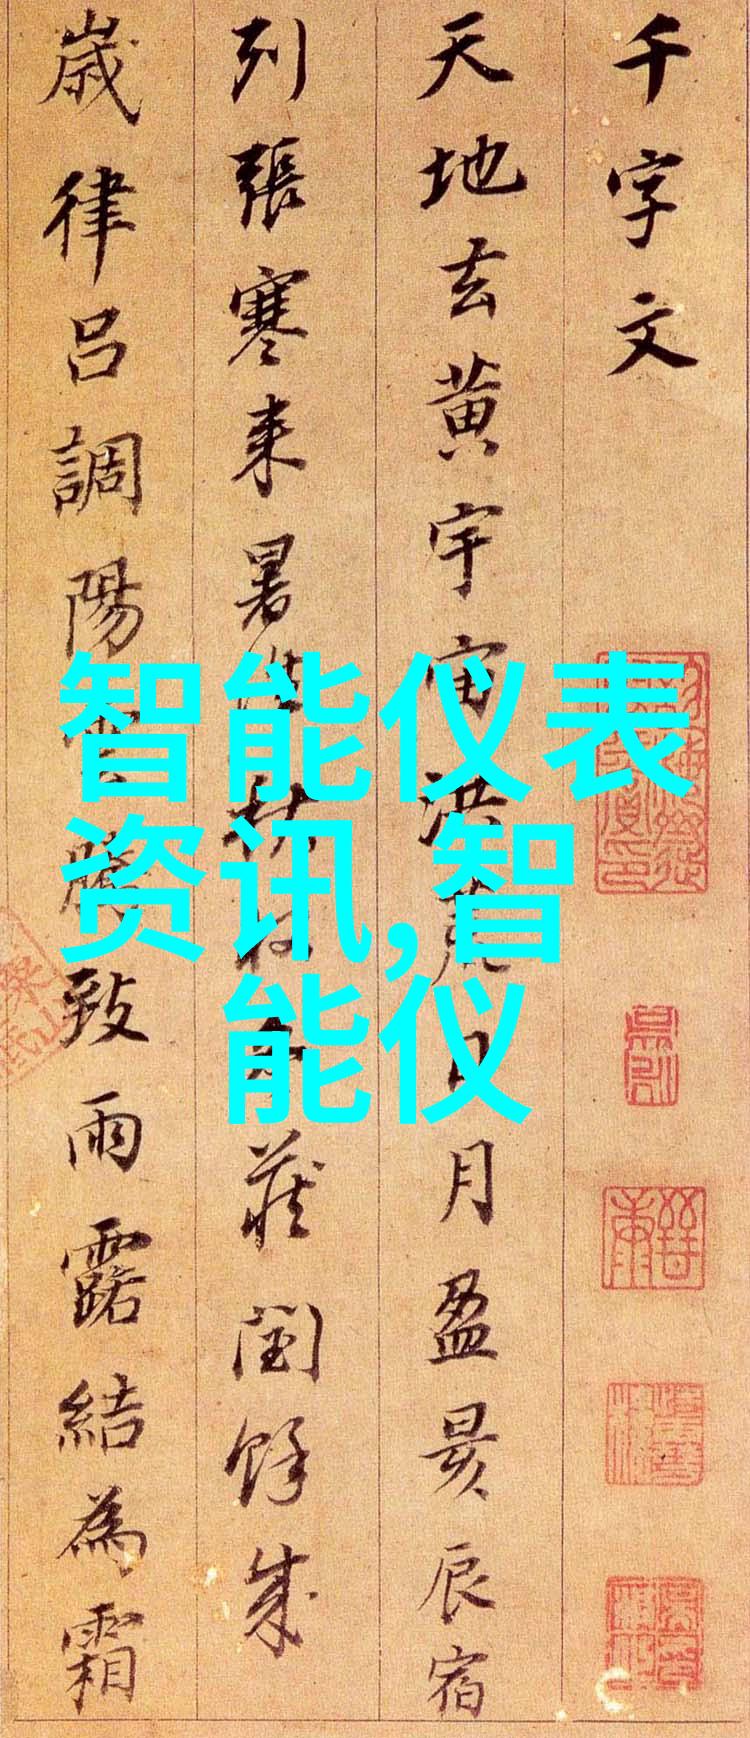 千字文
天地玄黄宇宙洪荒日月盈昃辰宿
列張寒来暑往秋收冬蔵閏餘成
歳律吕調陽雲騰致雨露結為霜
智能仪表
资讯,智
能仪